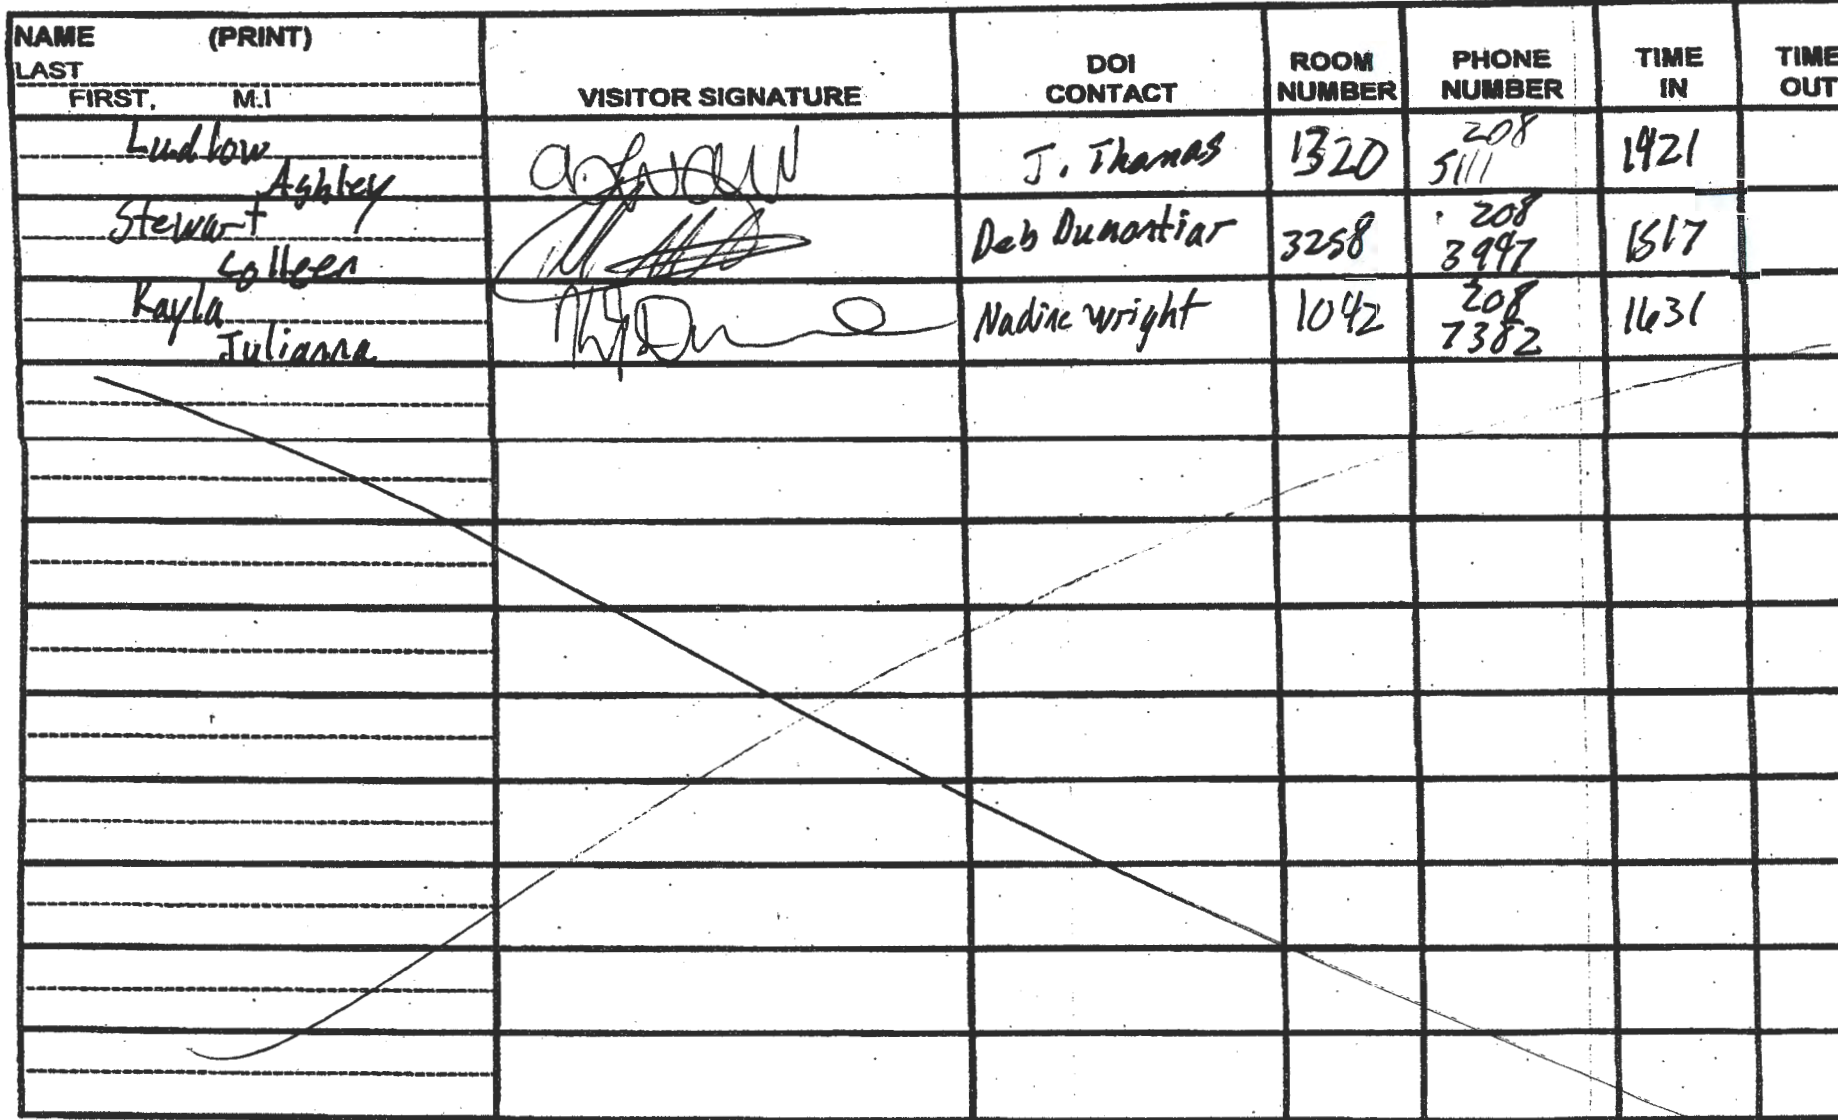 NAME (PRINT)
LAST
FIRST, M.I
VISITOR SIGNATURE
DOI
CONTACT
ROOM
NUMBER
PHONE
NUMBER
TIME
IN
TIME
OUT
Ludlow
Ashley
J. Thomas
1320
208
5111
1421
Stewart
Colleen
Deb
3258
208
3997
1517
Kayla
Julianna
Nadine Wright
1042
208
7382
1631